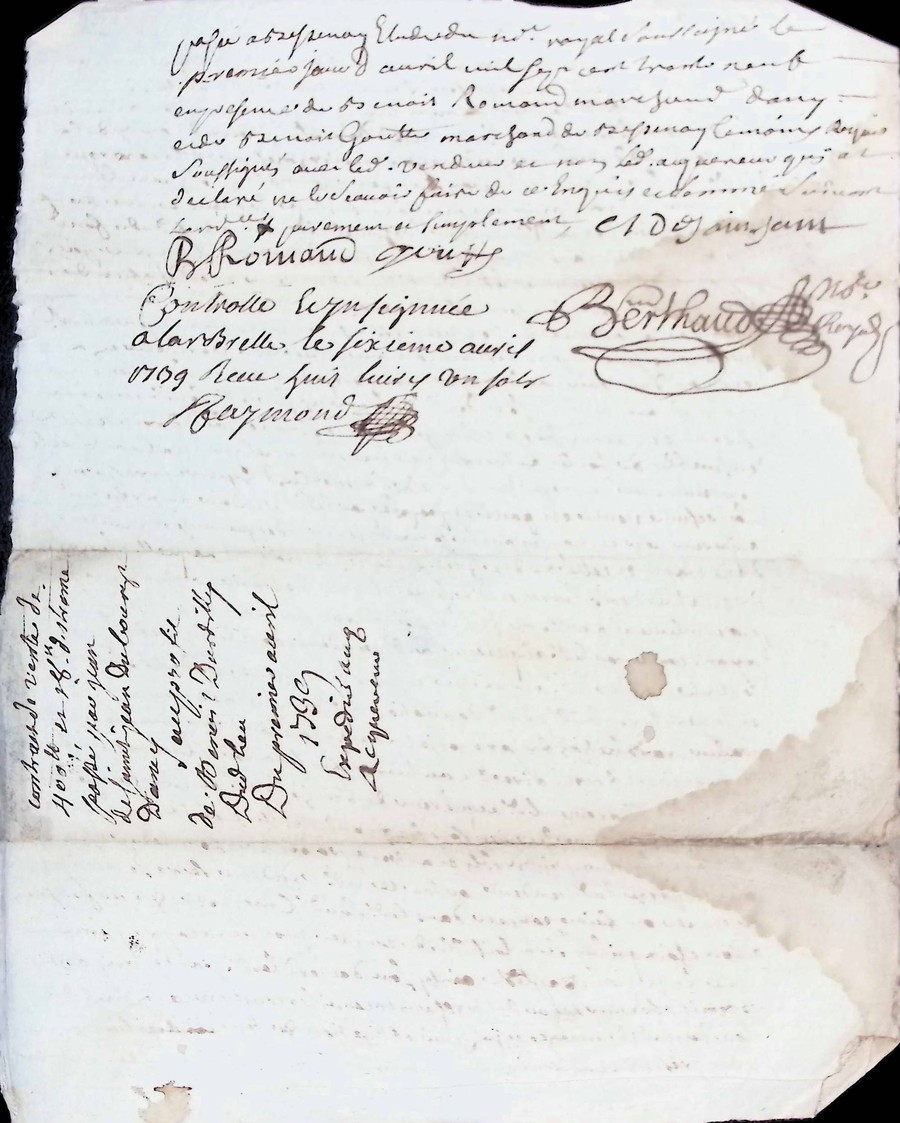 passé a Bessenay Etude du not.re royal Soussigné le
premier jour d avril mil sept cent trente neuf
en presence de Benoit Romand marchand dancy
et de Benoit Goutte marchand de Bessenay temoins Requis
Soussignés avec led. vendeur et non led. acquereur qui a
declaré ne le scavoir faire de ce Enquis et sommé Suivant
purement et simplement C I De Saint Jean
B Romand goutte
Controllé Et Insignüée
a larbrelle le sixieme avril
1739 Receu huit livres un sols
Raymond
Berthaud No.re Royal
contrat de vente de
400ll et
passé par jean
de Saint jean du bourg
Dancy au profit
de Benoit
Dud. lieu
Du premier avril
1739
Expedié aux
acquereur